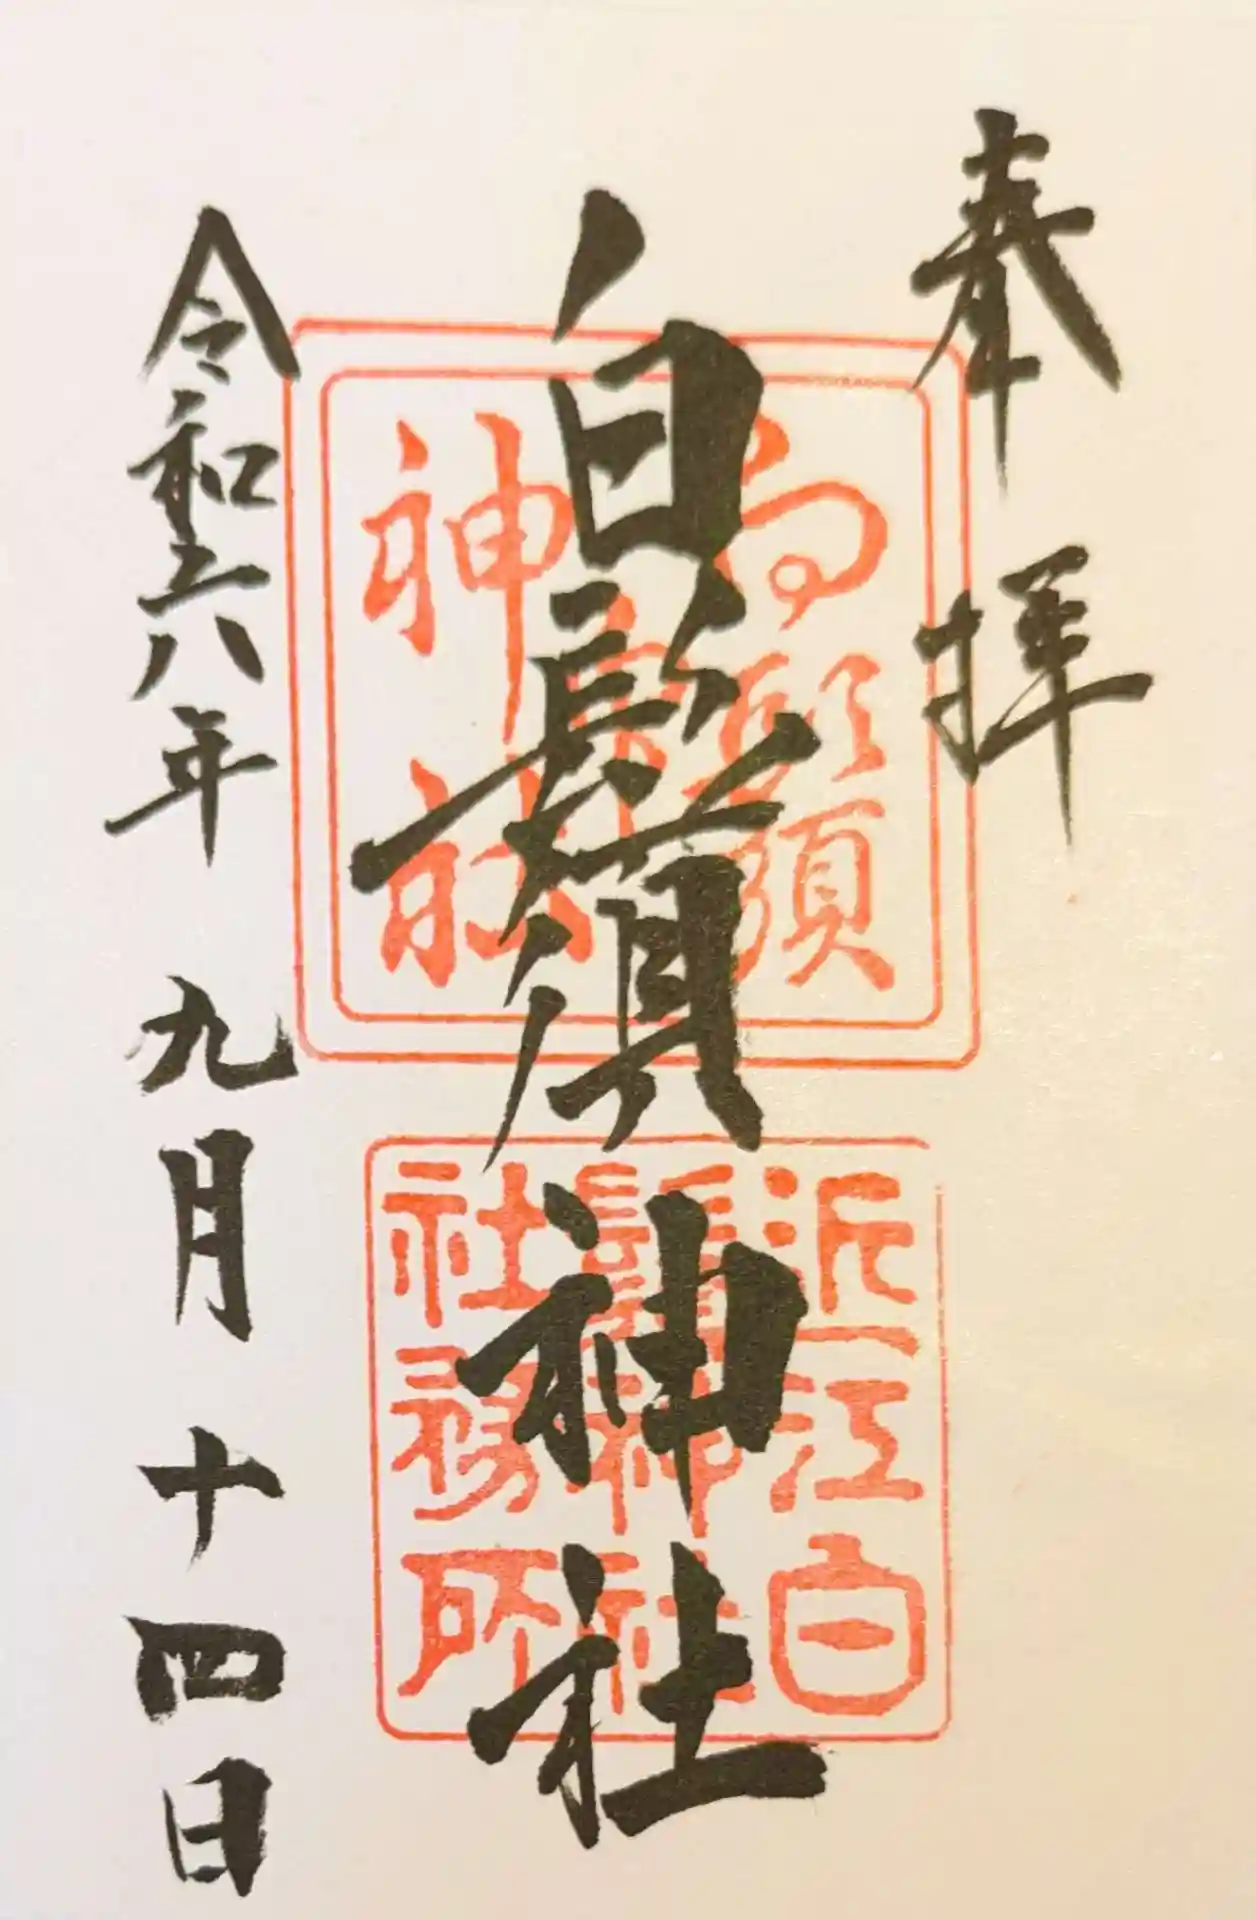 奉拝
白鬚神社
令和六年 九月十四日
神社
近江白
鬚神社
社務所